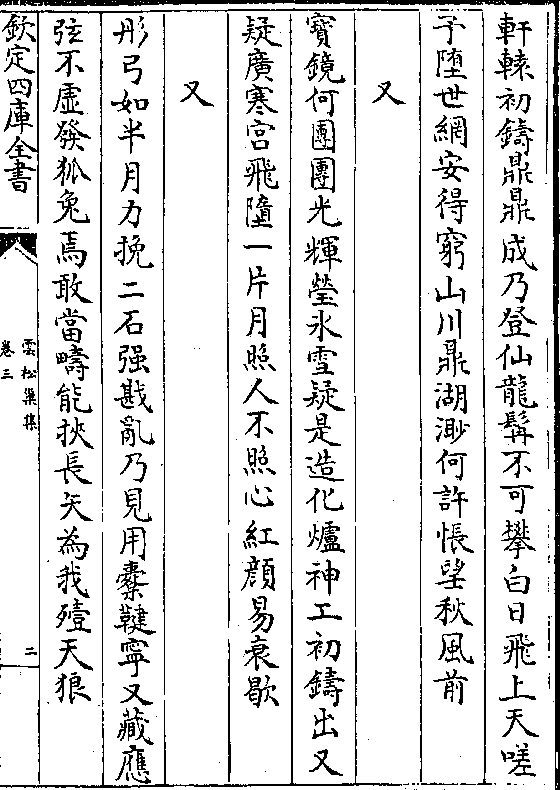 軒轅初鑄鼎鼎成乃登仙龍髯不可攀白日飛上天嗟
予墮世網安得窮山川鼎湖渺何許悵望秋風前
又
寳鏡何團團光輝瑩氷雪疑是造化爐神工初鑄出又
疑廣寒宫飛墮一片月照人不照心紅顔易衰歇
又
彤弓如半月力挽二石强戡亂乃見用櫜鞬寧又藏應
弦不虚發狐兔焉敢當疇能挾長矢為我殪天狼
欽定四庫全書
雲松巢集
卷三
二